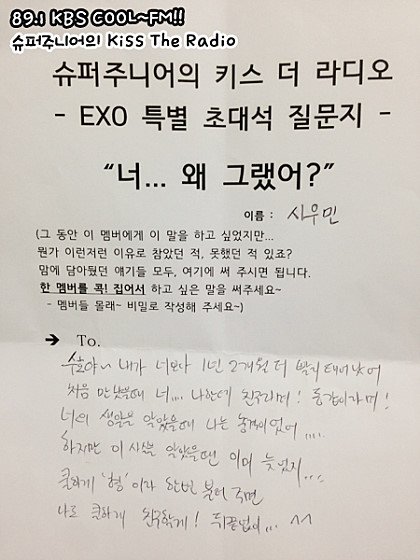 89.1 KBS COOL~FM!!
슈퍼주니어의 Kiss The Radio
슈퍼주니어의 키스 더 라디오
- EXO 특별 초대석 질문지 -
“너... 왜 그랬어?”
이름 : 시우민
(그 동안 이 멤버에게 이 말을 하고 싶었지만...
뭔가 이런저런 이유로 참았던 적, 못했던 적 있죠?
맘에 담아뒀던 얘기들 모두, 여기에 써 주시면 됩니다.
한 멤버를 콕! 집어서 하고 싶은 말을 써주세요~
- 멤버들 몰래~ 비밀로 작성해 주세요~)
➔ To.
수호야~ 내가 너보다 1년 2개월 더 빨리 태어났어
처음 만났을때 너... 나한테 친구라며! 동갑이라며!
너의 생일을 알았을때 나는 충격이었어....
하지만 이 사실을 알았을땐 이미 늦었지...
쿨하게 '형'이라 한번 불러주면
나도 쿨하게 친구할게! 뒤끝없이... ^^